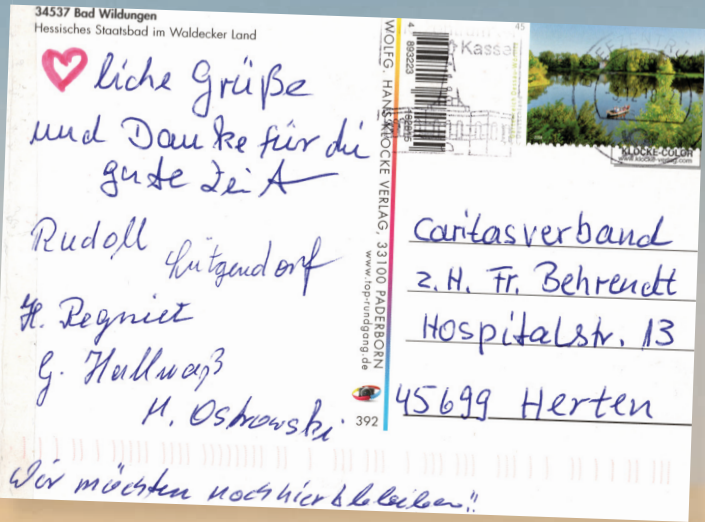 34537 Bad Wildungen
Hessisches Staatsbad im Waldecker Land
liche Grüße
und Danke für die
gute Zeit
Rudolf Lützendorf
H. Regniet
G. Hallwaß
M. Ostrowski
Wir möchten noch hier bleiben!!
WOLFG. HANS KLOCKE VERLAG, 33100 PADERBORN
www.top-rundgang.de
392
4 893223
Kassel
45
KLOCKE-COLOR
www.klocke-verlag.com
Caritasverband
z. H. Fr. Behrendt
Hospitalstr. 13
45699 Herten